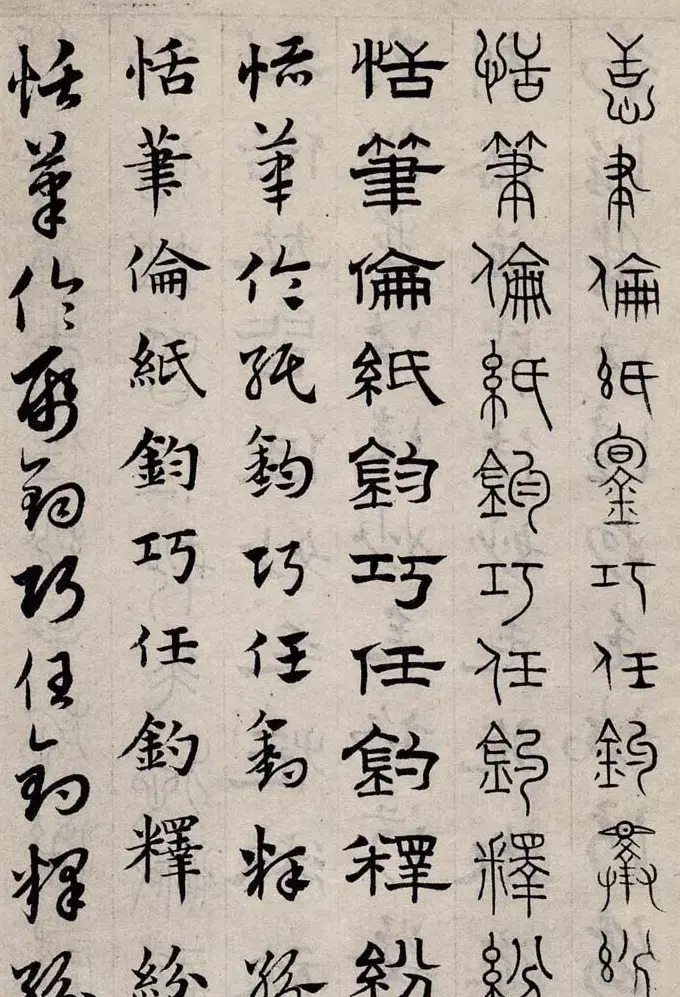 恬聿倫紙鈞巧任釣釋紛
恬筆倫紙鈞巧任釣釋紛
恬筆倫紙鈞巧任釣釋紛
恬筆倫紙鈞巧任釣釋紛
恬筆倫紙鈞巧任釣釋紛
恬筆倫紙鈞巧任釣釋紛